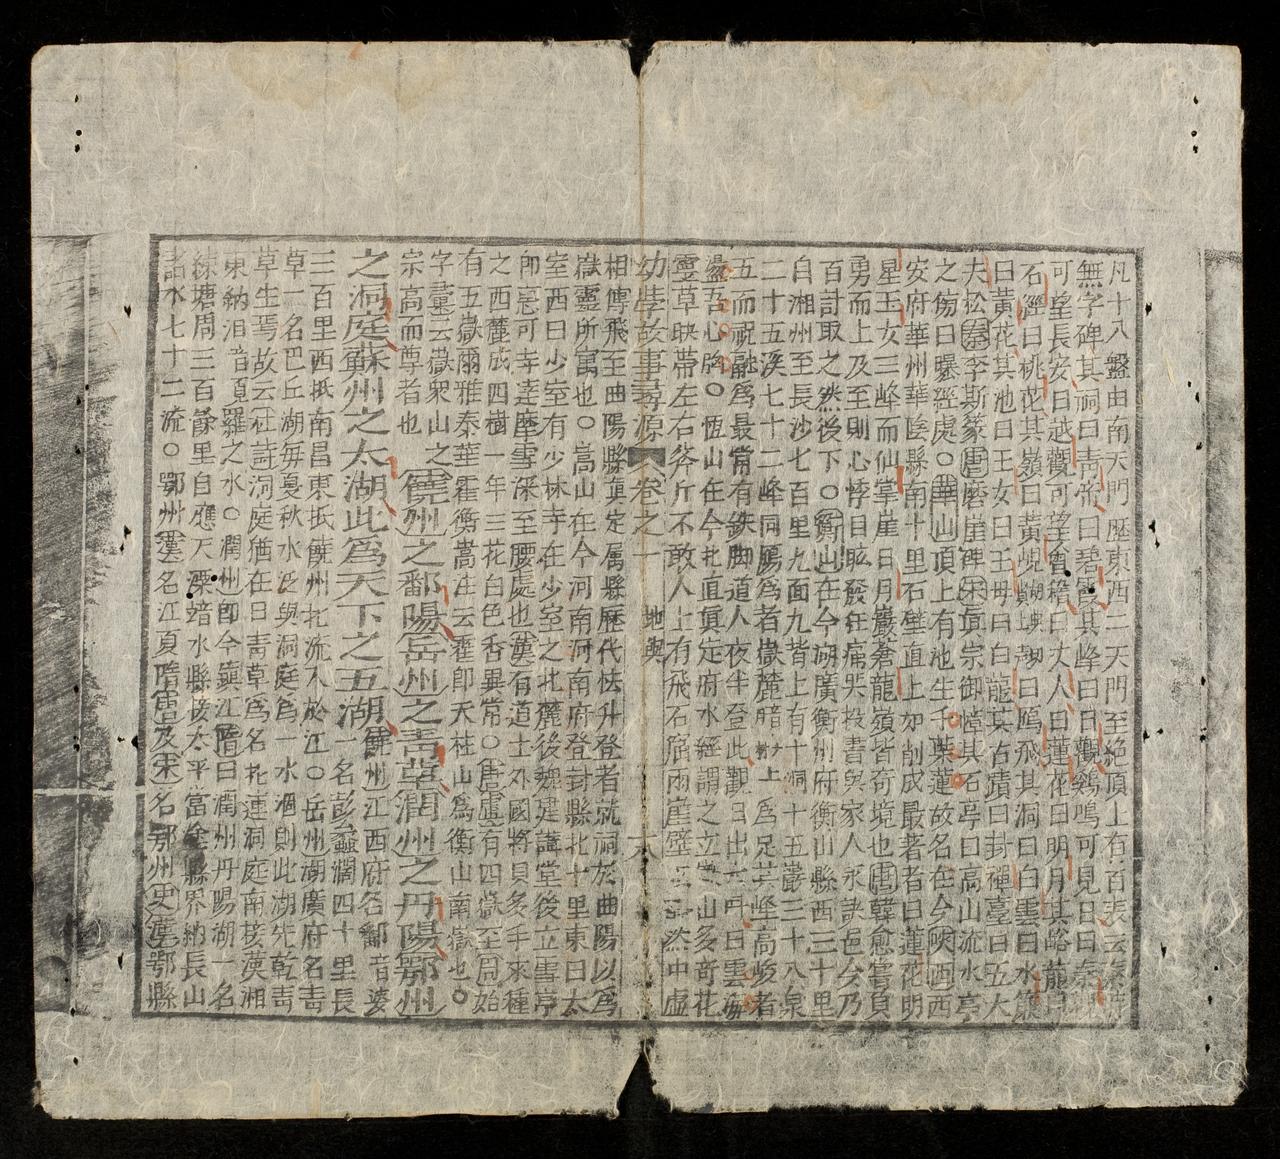 凡十八盤由南天門歷東西二天門至絕頂上有百張云
無字碑其祠曰青帝曰碧霞其峰曰日觀鷄鳴可見日曰秦觀
可望長安曰越觀可望會稽曰丈人曰蓮花曰明月其峪
石經曰桃花其嶺曰黃峴鴈飛其洞曰白雲曰水簾
曰黃花其池曰玉女曰王母曰白龍其古蹟曰封禪臺曰五大
夫松秦李斯篆唐磨崖碑宋眞宗御幛其石亭曰高山流水亭
之傷曰曝經處○華山頂上有池生千葉蓮故名在今陝西西
安府華州華陰縣南十里石壁直上如削成最著者曰蓮花明
星玉女三峰而仙掌崖日月巖蒼龍嶺皆奇境也唐韓愈嘗負
勇而上及至則心悸目眩發狂痛哭投書與家人永訣邑令乃
百計取之然後下○衡山在今湖廣衡州府衡山縣西三十里
自湘州至長沙七百里九面九背上有十洞十五巖三十八泉
二十五溪七十二峰同腸爲者嶽麓暗
上爲足其峰高峻者
五而祝融爲最常有鉄脚道人夜半登此觀日出大叫曰雲海
盪吾心胸○恆山在今北直眞定府水經謂之立嶽山多奇花
靈草映帶左右斧斤不敢人上有飛石窟雨崖壁然中虛
幼學故事尋源 卷之一 地輿
相傳飛至曲陽縣眞定属縣歷代怯升登者就祠於曲陽以爲
嶽靈所寓也○嵩山在今河南河南府登封縣北十里東曰太
室西曰少室有少林寺在少室之北麓後魏建講堂後立雪亭
卽惠可寺達摩雪深至腰處也漢有道士外國將貝多千來種
之西麓成四樹一年三花白色香異常○唐虞有四嶽至周始
有五嶽爾雅泰華霍衡嵩注云霍卽天柱山爲衡山南嶽也○
字彙云嶽衆山之
宗高而尊者也
饒州之鄱陽岳州之青草潤州之丹陽鄂州
之洞庭蘇州之太湖此爲天下之五湖
饒州江西府名鄱音婆
一名彭蠡濶四十里長
三百里西抵南昌東抵饒州北流入於江○岳州湖廣府名青
草一名巴丘湖每夏秋水泛與洞庭爲一水涸則此湖先乾青
草生焉故云杜詩洞庭猶在日青草爲名北連洞庭南接漠湘
東納汨音頁羅之水○潤州卽今鎭江隋曰潤州丹陽湖一名
練塘周三百餘里自應天溧暗水縣接太平富塗縣界納長山
諸水七十二流○鄂州漢名江夏隋甯吳及宋名鄂州史漢鄂縣